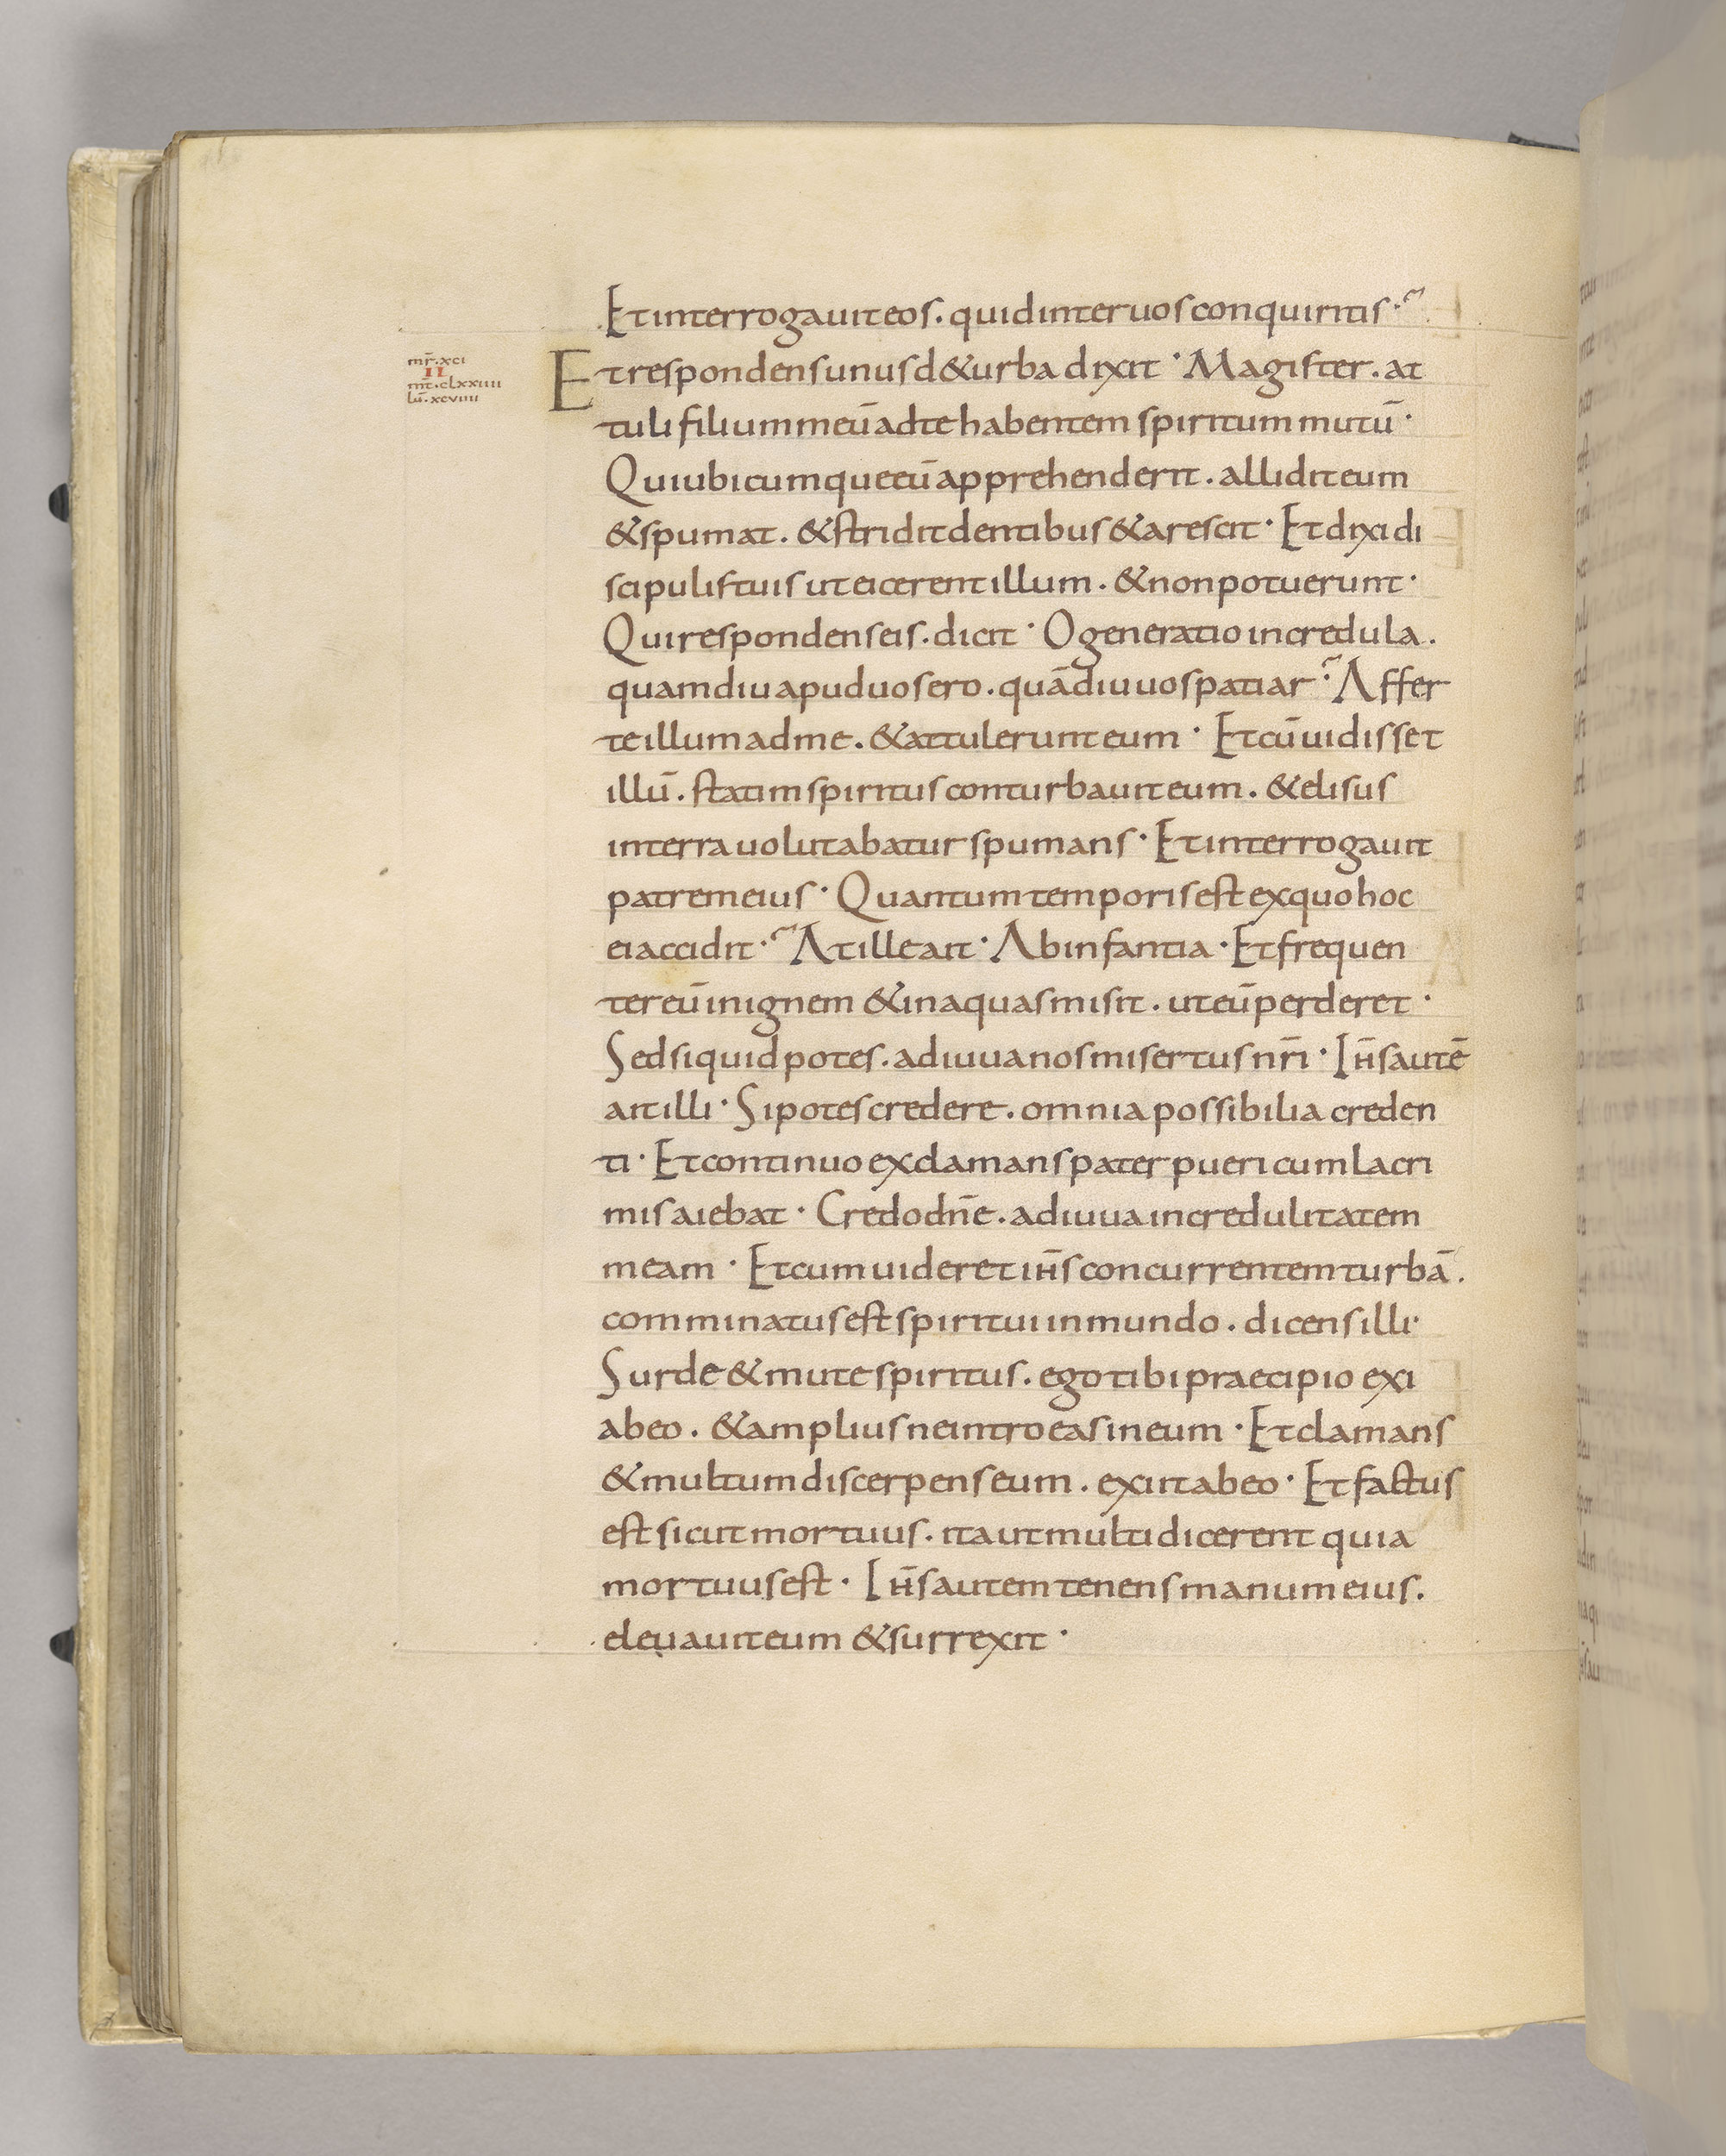 Et interrogauit eos. quid inter uos conquiritis·
mr̄.xci
II
mt̄.clxxiiii
lū.xcviiii
Et respondens unus d& urba dixit · Magister. at
tuli filium meū ad te habentem spiritum mutū ·
Qui ubicumque eū apprehenderit. allidit eum
& spumat. & stridit dentibus & arescit · Et dixi di
scipulis tuis ut eicerent illum. & non potuerunt ·
Qui respondens eis. dicit · O generatio incredula.
quamdiu apud uos ero. quādiu uos patiar · Affer
te illum ad me. & attulerunt eum · Et cū uidisset
illū. statim spiritus conturbauit eum. & elisus
in terra uolutabatur spumans · Et interrogauit
patrem eius · Quantum temporis est ex quo hoc
ei accidit · At ille ait · Ab infantia · Et frequen
ter eū in ignem & in aquas misit. ut eū perderet ·
Sed si quid potes. adiuua nos misertus nr̄i · Ih̄s autē
ait illi · Si potes credere. omnia possibilia creden
ti · Et continuo exclamans pater pueri cum lacri
mis aiebat · Credo dn̄e. adiuua incredulitatem
meam · Et cum uideret ih̄s concurrentem turbā.
comminatus est spiritui inmundo. dicens illi·
Surde & mute spiritus. ego tibi praecipio exi
ab eo. & amplius ne introeas in eum · Et clamans
& multum discerpens eum. exiit ab eo · Et factus
est sicut mortuus. ita ut multi dicerent quia
mortuus est · Ih̄s autem tenens manum eius.
eleuauit eum & surrexit ·